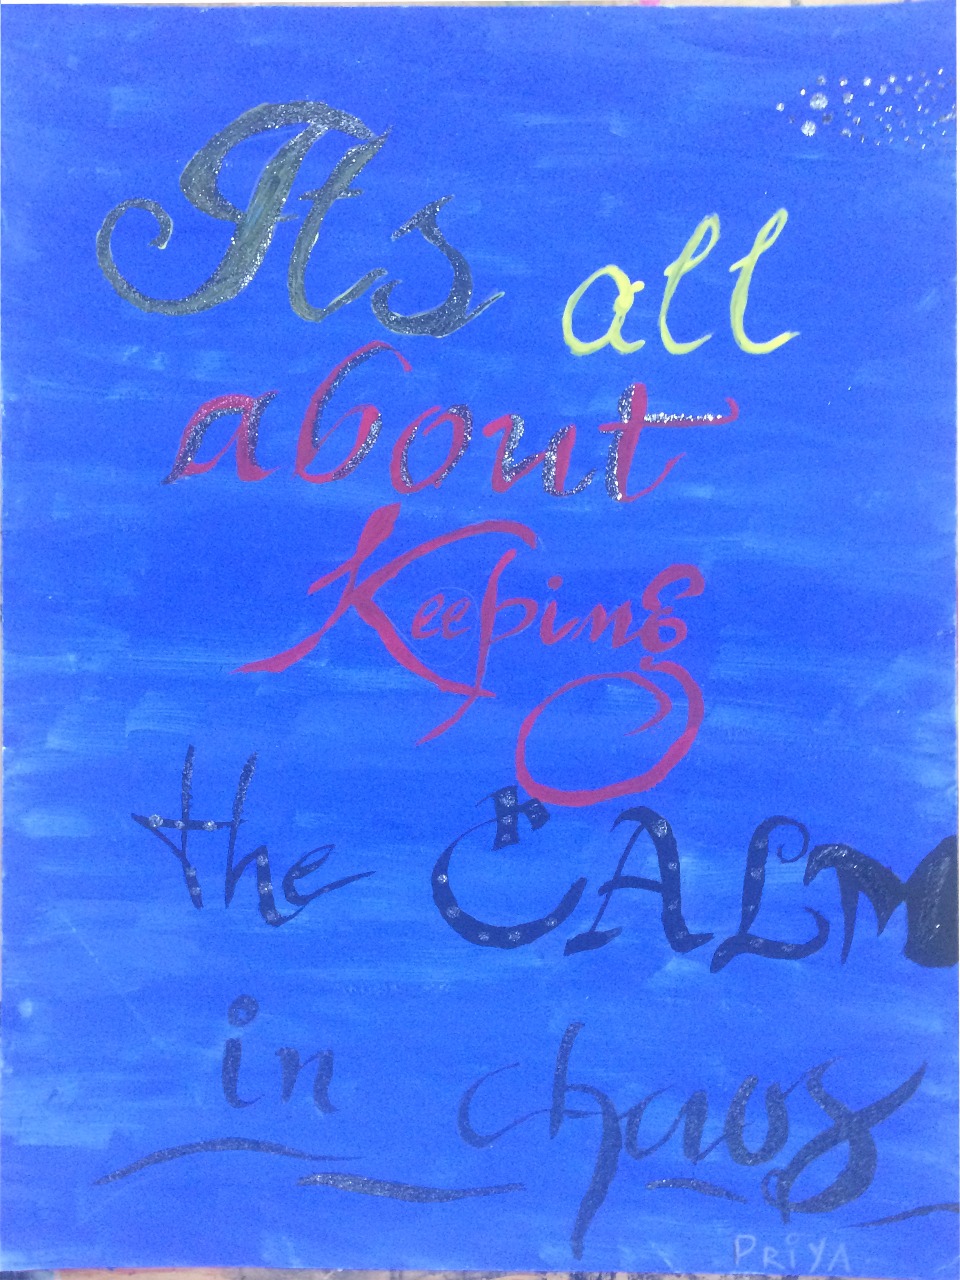 Its all
about
Keeping
the CALM
in chaos
PRIYA